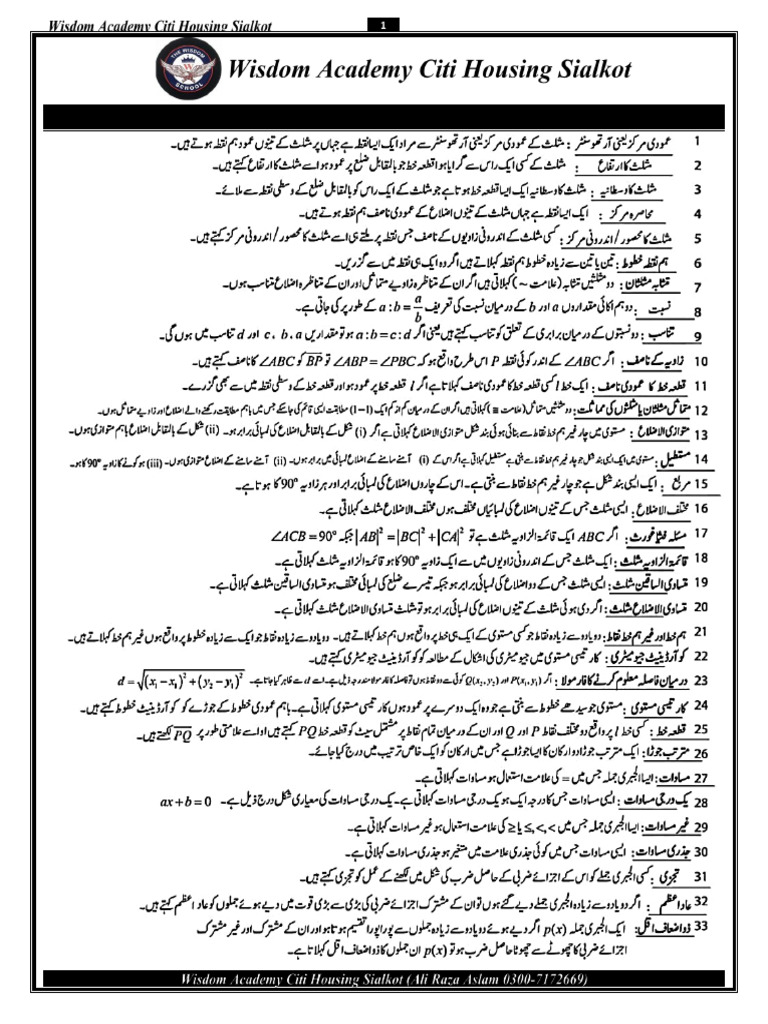 Wisdom Academy Citi Housing Sialkot
1
THE WISDOM
SCHOOL
Wisdom Academy Citi Housing Sialkot
1 عمودی مرکز یعنی آرتھوسنٹر : مثلث کے عمودی مرکز یعنی آرتھوسنٹر سے مراد ایک ایسا نقطہ ہے جہاں پر مثلث کے تینوں عمود ہم نقطہ ہوتے ہیں۔
2 مثلث کا ارتفاع : مثلث کے کسی ایک راس سے گرایا ہوا قطعہ خط جو بالمقابل ضلع پر عمود ہو اسے مثلث کا ارتفاع کہتے ہیں۔
3 مثلث کا وسطانیہ : مثلث کا وسطانیہ ایک ایسا قطعہ خط ہوتا ہے جو مثلث کے ایک راس کو بالمقابل ضلع کے وسطی نقطہ سے ملائے۔
4 محاصرہ مرکز : ایک ایسا نقطہ ہے جہاں مثلث کے تینوں اضلاع کے عمودی ناصف ہم نقطہ ہوتے ہیں۔
5 مثلث کا محصور/اندرونی مرکز : کسی مثلث کے اندرونی زاویوں کے ناصف جس نقطہ پر ملتے ہیں اسے مثلث کا محصور/اندرونی مرکز کہتے ہیں۔
6 ہم نقطہ خطوط : تین یا تین سے زیادہ خطوط ہم نقطہ کہلاتے ہیں اگر وہ ایک ہی نقطہ میں سے گزریں۔
7 متشابہ مثلثان : دو مثلثیں متشابہ (علامت ~) کہلاتی ہیں اگر ان کے متناظرہ زاویے متماثل اور ان کے متناظرہ اضلاع متناسب ہوں۔
8 نسبت : دو ہم اکائی مقداروں a اور b کے درمیان نسبت کی تعریف a : b = a/b کے طور پر کی جاتی ہے۔
9 تناسب : دو نسبتوں کے درمیان برابری کے تعلق کو تناسب کہتے ہیں یعنی اگر a : b = c : d ہو تو مقداریں a ، b ، c اور d تناسب میں ہوں گی۔
10 زاویہ کے ناصف : اگر ∠ABC کے اندر کوئی نقطہ P اس طرح واقع ہو کہ ∠ABP = ∠PBC تو BP کو ∠ABC کا ناصف کہتے ہیں۔
11 قطعہ خط کا عمودی ناصف : ایک خط l کسی قطعہ خط کا عمودی ناصف کہلاتا ہے اگر l قطعہ خط پر عمود ہو اور قطعہ خط کے وسطی نقطہ میں سے بھی گزرے۔
12 متماثل مثلثان یا مثلثوں کی مماثلت : دو مثلثیں متماثل (علامت ≅) کہلاتی ہیں اگر ان کے درمیان کم از کم ایک (1−1) مطابقت ایسی قائم کی جا سکے جس میں باہم مطابقت رکھنے والے اضلاع اور زاویے متماثل ہوں۔
13 متوازی الاضلاع : مستوی میں چار غیر ہم خط نقاط سے بنائی ہوئی بند شکل متوازی الاضلاع کہلاتی ہے اگر (i) شکل کے بالمقابل اضلاع کی لمبائی برابر ہو۔ (ii) شکل کے بالمقابل اضلاع باہم متوازی ہوں۔
14 مستطیل : مستوی میں ایک ایسی بند شکل جو چار غیر ہم خط نقاط سے بنتی ہے مستطیل کہلاتی ہے اگر اس کے (i) آمنے سامنے کے اضلاع لمبائی میں برابر ہوں۔ (ii) آمنے سامنے کے اضلاع متوازی ہوں۔ (iii) ہر کونے کا زاویہ 90° کا ہو۔
15 مربع : ایک ایسی بند شکل ہے جو چار غیر ہم خط نقاط سے بنتی ہے۔ اس کے چاروں اضلاع کی لمبائی برابر اور ہر زاویہ 90° کا ہوتا ہے۔
16 مختلف الاضلاع : ایسی مثلث جس کے تینوں اضلاع کی لمبائیاں مختلف ہوں مختلف الاضلاع مثلث کہلاتی ہے۔
17 مسئلہ فیثاغورث : اگر ABC ایک قائمۃ الزاویہ مثلث ہے تو |AB|² = |BC|² + |CA|² جبکہ ∠ACB = 90°
18 قائمۃ الزاویہ مثلث : ایک مثلث جس کے اندرونی زاویوں میں سے ایک زاویہ 90° کا ہو قائمۃ الزاویہ مثلث کہلاتی ہے۔
19 متساوی الساقین مثلث : ایسی مثلث جس کے دو اضلاع کی لمبائی برابر ہو جبکہ تیسرے ضلع کی لمبائی مختلف ہو متساوی الساقین مثلث کہلاتی ہے۔
20 متساوی الاضلاع مثلث : اگر دی ہوئی مثلث کے تینوں اضلاع کی لمبائی برابر ہو تو مثلث متساوی الاضلاع مثلث کہلاتی ہے۔
21 ہم خط اور غیر ہم خط نقاط : دو یا دو سے زیادہ نقاط جو کسی مستوی کے ایک ہی خط پر واقع ہوں ہم خط کہلاتے ہیں۔ دو یا دو سے زیادہ نقاط جو ایک سے زیادہ خطوط پر واقع ہوں غیر ہم خط کہلاتے ہیں۔
22 کوآرڈینیٹ جیومیٹری : کارتیسی مستوی میں جیومیٹری کی اشکال کے مطالعہ کو کوآرڈینیٹ جیومیٹری کہتے ہیں۔
23 درمیان فاصلہ معلوم کرنے کا فارمولا : اگر P(x₁, y₁) اور Q(x₂, y₂) کوئی سے دو نقاط ہوں تو فاصلہ کا فارمولا مندرجہ ذیل ہے۔ اسے d سے ظاہر کیا جاتا ہے۔ d = √(x₁ − x₂)² + (y₂ − y₁)²
24 کارتیسی مستوی : مستوی جو سیدھے خطوط سے بنتی ہے جو ایک دوسرے پر عمود ہوں کارتیسی مستوی کہلاتی ہے۔ باہم عمودی خطوط کے جوڑے کو کوآرڈینیٹ خطوط کہتے ہیں۔
25 قطعہ خط : کسی خط l پر واقع دو مختلف نقاط P اور Q اور ان کے درمیان تمام نقاط پر مشتمل سیٹ کو قطعہ خط PQ کہتے ہیں اور اسے علامتی طور پر PQ لکھتے ہیں۔
26 مترتب جوڑا : ایک مترتب جوڑا دو ارکان کا ایسا جوڑا ہے جس میں ارکان کو ایک خاص ترتیب میں درج کیا جائے۔
27 مساوات : ایسا الجبری جملہ جس میں = کی علامت استعمال ہو مساوات کہلاتی ہے۔
28 یک درجی مساوات : ایسی مساوات جس کا درجہ ایک ہو یک درجی مساوات کہلاتی ہے۔ یک درجی مساوات کی معیاری شکل درج ذیل ہے۔ ax + b = 0
29 غیر مساوات : ایسا الجبری جملہ جس میں <, >, ≤ یا ≥ کی علامت استعمال ہو غیر مساوات کہلاتی ہے۔
30 جذری مساوات : ایسی مساوات جس میں کوئی جذری علامت میں متغیر ہو جذری مساوات کہلاتی ہے۔
31 تجزی : کسی الجبری جملے کو اس کے اجزائے ضربی کے حاصل ضرب کی شکل میں لکھنے کے عمل کو تجزی کہتے ہیں۔
32 عاد اعظم : اگر دو یا دو سے زیادہ الجبری جملے دیے گئے ہوں تو ان کے مشترک اجزائے ضربی کی بڑی سے بڑی قوت میں دیے ہوئے جملوں کو عاد اعظم کہتے ہیں۔
33 ذو اضعاف اقل : ایک الجبری جملہ p(x) اگر دیے ہوئے دو یا دو سے زیادہ جملوں سے پورا پورا تقسیم ہوتا ہو اور ان کے مشترک اور غیر مشترک
اجزائے ضربی کا چھوٹے سے چھوٹا حاصل ضرب ہو تو p(x) ان جملوں کا ذو اضعاف اقل کہلاتا ہے۔
Wisdom Academy Citi Housing Sialkot (Ali Raza Aslam 0300-7172669)